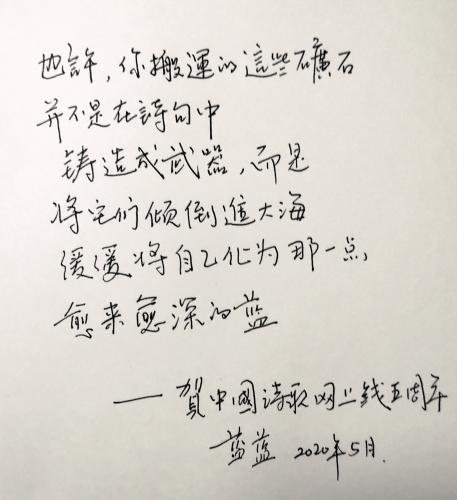 也許，你搬運的這些礦石
并不是在詩句中
铸造成武器，而是
将它们倾倒進大海
缓缓将自己化为那一点
愈来愈深的蓝
——賀中國诗歌网上线五周年
蓝蓝 2020年5月.